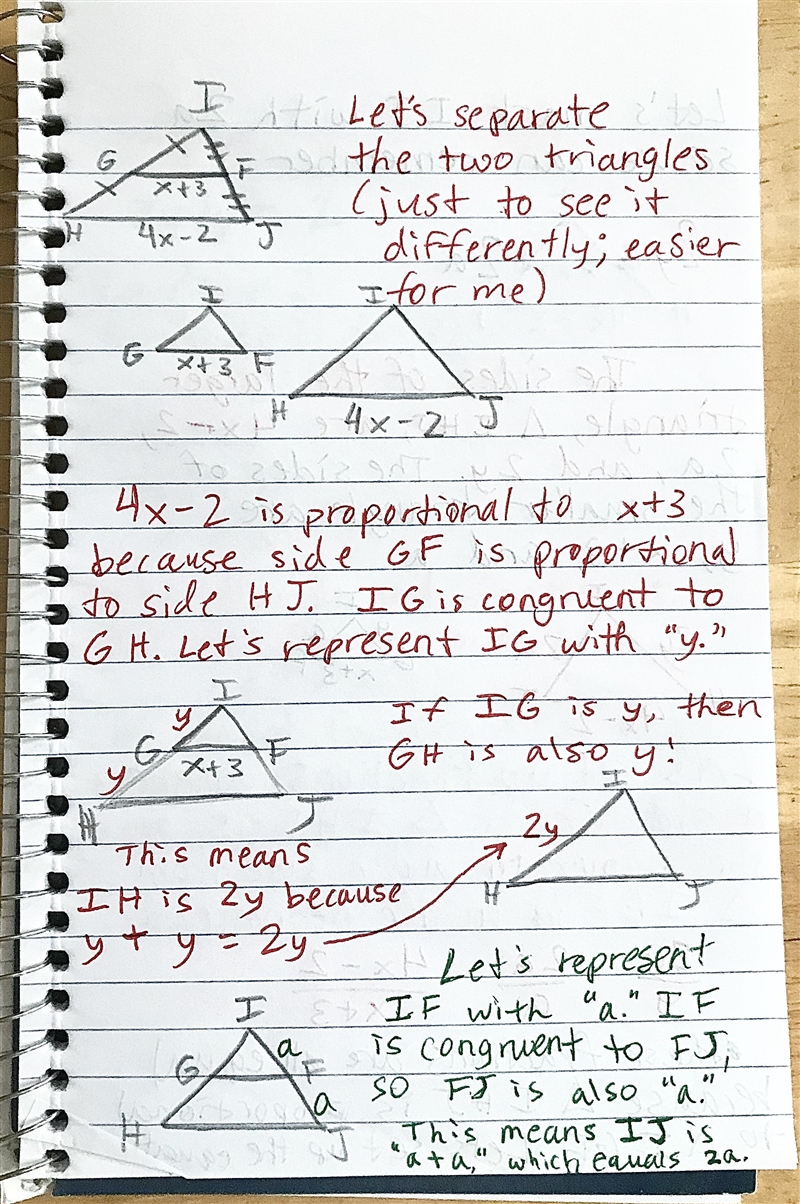 I
G
x
F
x
x+3
H
4x-2
J
Let's separate
the two triangles
(just to see it
differently; easier
for me)
I
G
x+3
F
I
H
4x-2
J
4x-2 is proportional to x+3
because side GF is proportional
to side HJ. IG is congruent to
GH. Let's represent IG with "y."
I
y
G
F
y
x+3
H
J
If IG is y, then
GH is also y!
This means
IH is 2y because
y + y = 2y
I
2y
H
J
Let's represent
IF with "a." IF
is congruent to FJ,
so FJ is also "a."
This means IJ is
"a+a," which equals 2a.
I
a
G
F
a
H
J